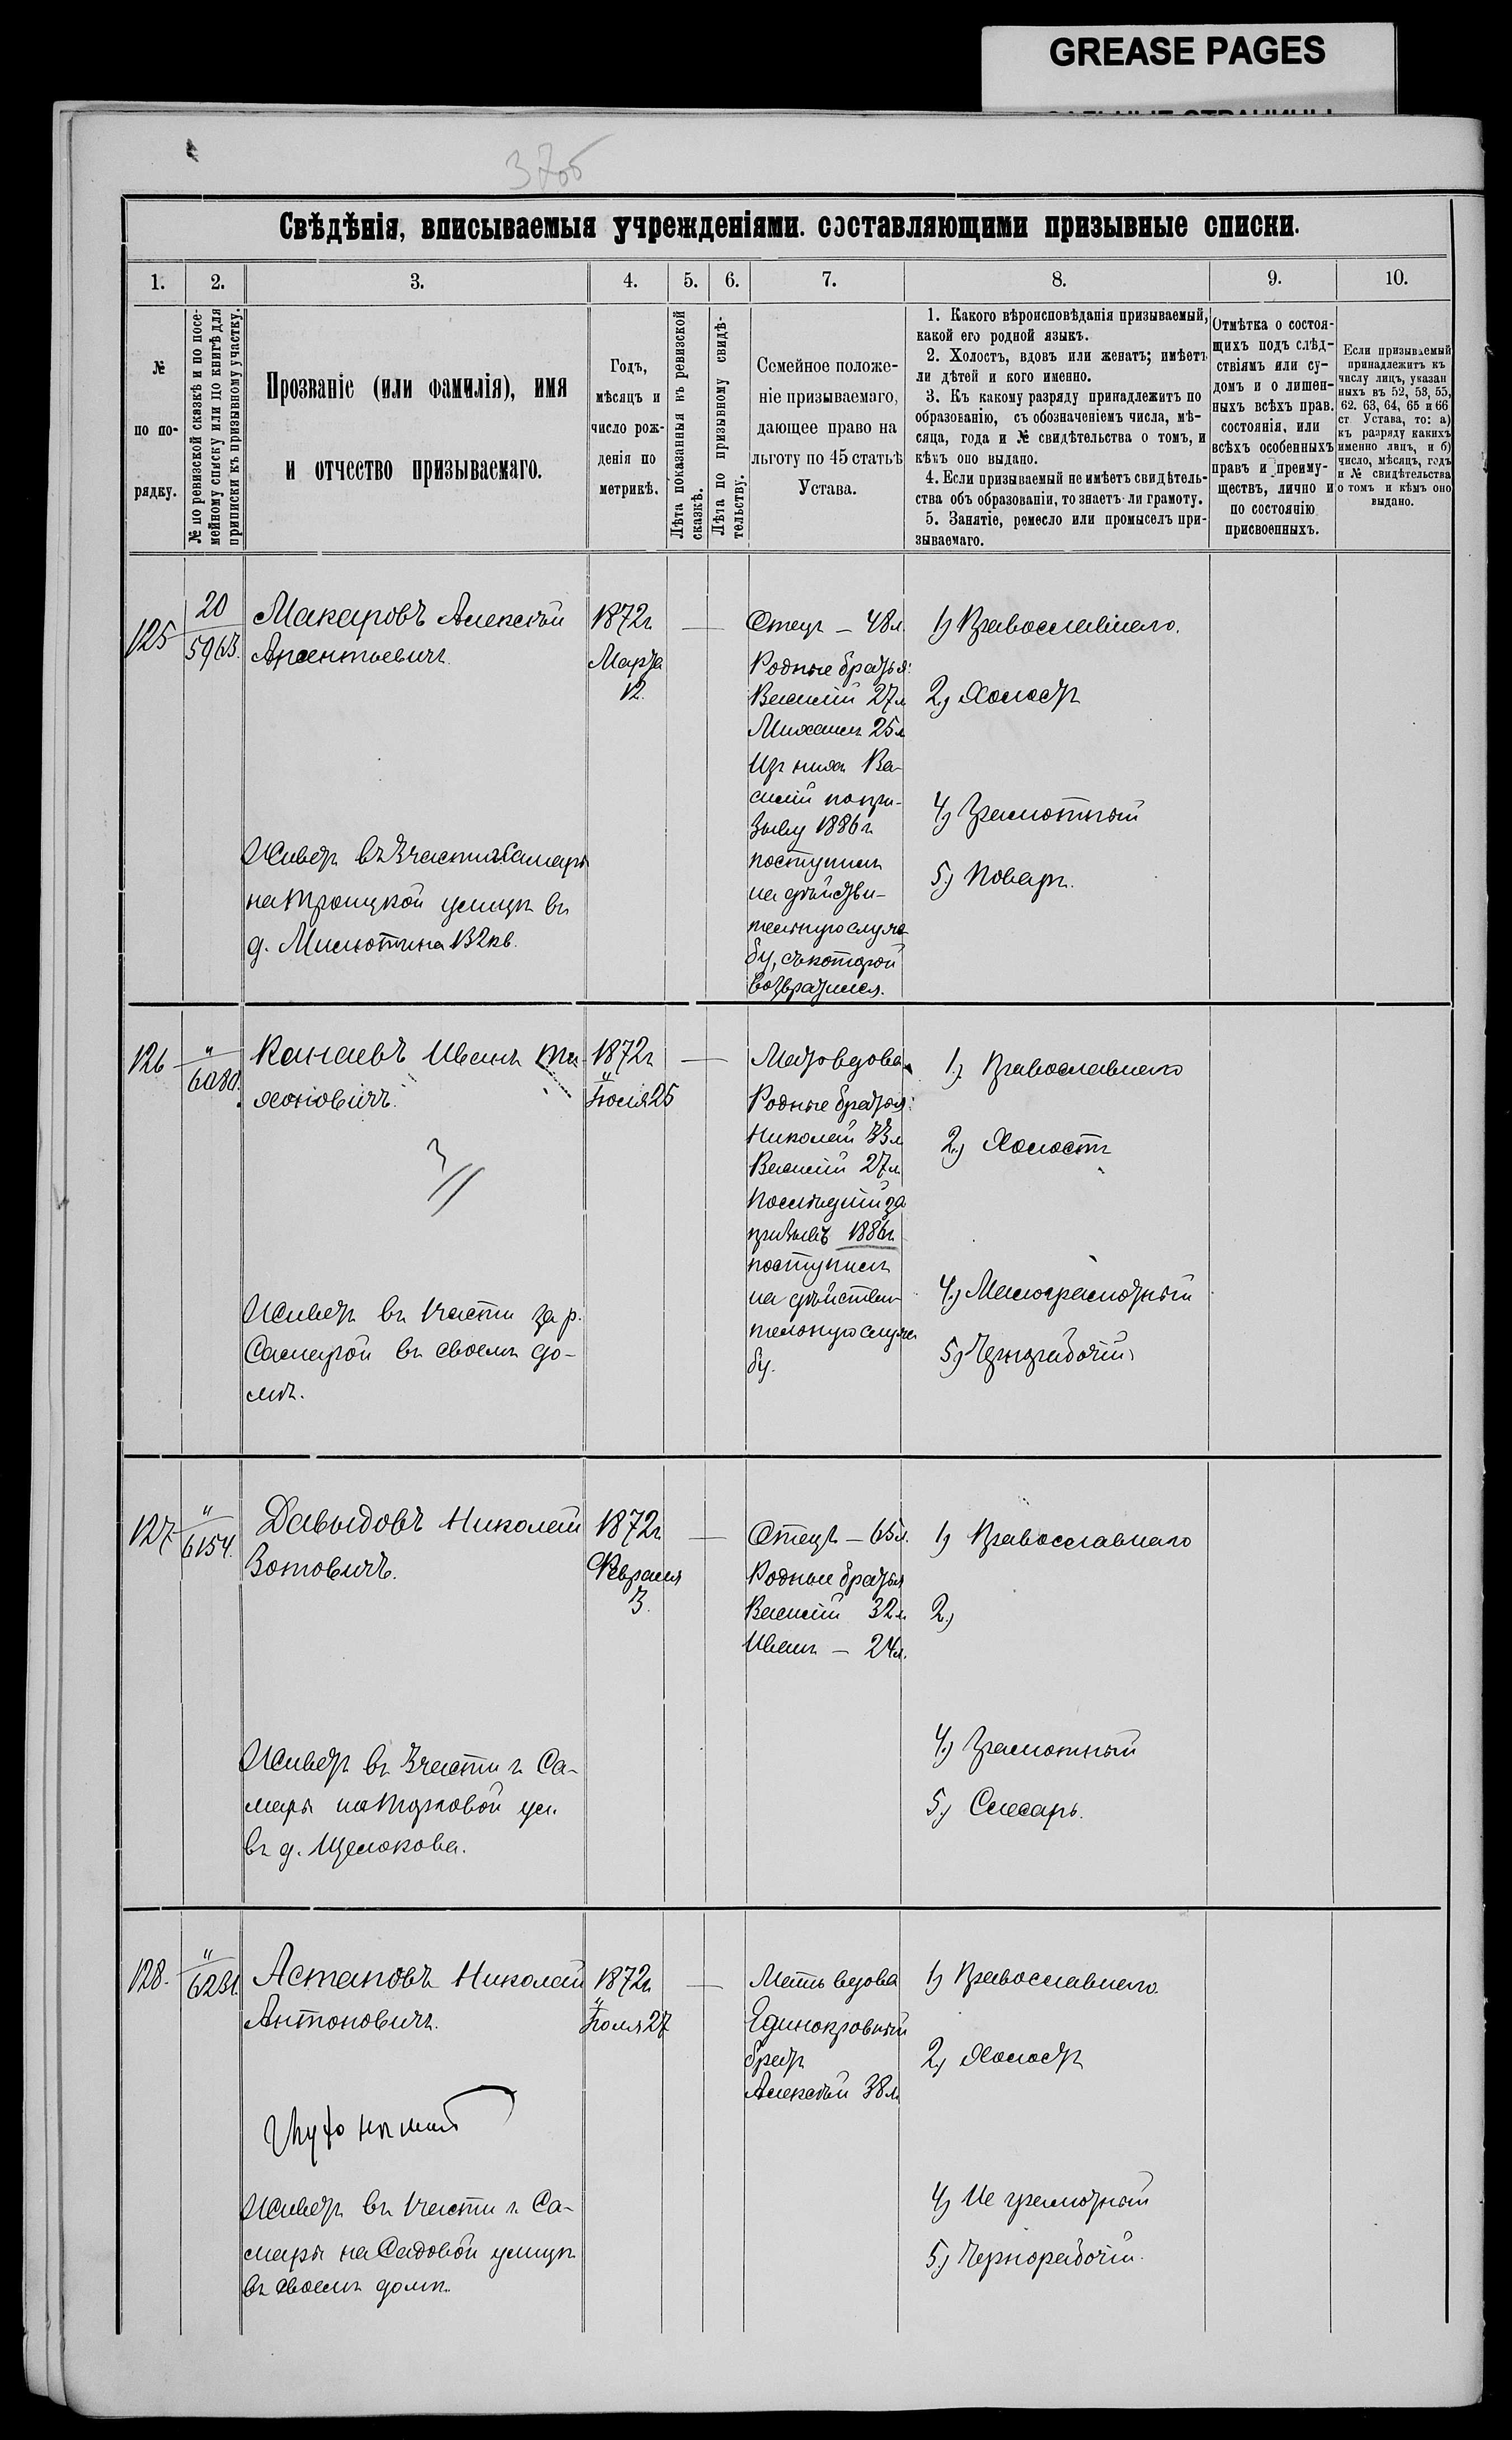 GREASE PAGES
37об
Свѣдѣнія, вписываемыя учрежденіями. составляющими призывные списки.
1.
2.
3.
4.
5.
6.
7.
8.
9.
10.
№
по по-
рядку.
№ по ревизской сказкѣ и по посе-
мейному списку или по книгѣ для
приписки къ призывному участку.
Прозваніе (или фамилія), имя
и отчество призываемаго.
Годъ,
мѣсяцъ и
число рож-
денія по
метрикѣ.
Лѣта показанныя къ ревизской
сказкѣ.
Лѣта по призывному свидѣ-
тельству.
Семейное положе-
ніе призываемаго,
дающее право на
льготу по 45 статьѣ
Устава.
1. Какого вѣроисповѣданія призываемый,
какой его родной языкъ.
2. Холостъ, вдовъ или женатъ; имѣетъ
ли дѣтей и кого именно.
3. Къ какому разряду принадлежитъ по
образованію, съ обозначеніемъ числа, мѣ-
сяца, года и № свидѣтельства о томъ, и
кѣмъ оно выдано.
4. Если призываемый не имѣетъ свидѣтель-
ства объ образованіи, то знаетъ ли грамоту.
5. Занятіе, ремесло или промыселъ при-
зываемаго.
Отмѣтка о состоя-
щихъ подъ слѣд-
ствіямъ или су-
домъ и о лишен-
ныхъ всѣхъ прав.
состоянія, или
всѣхъ особенныхъ
правъ и преиму-
ществъ, лично и
по состоянію
присвоенныхъ.
Если призываемый
принадлежитъ къ
числу лицъ, указан
ныхъ въ 52, 53, 55,
62. 63, 64, 65 и 66
ст Устава, то: а)
къ разряду какихъ
именно лицъ, и б)
число, мѣсяцъ, годъ
и № свидѣтельства
о томъ и кѣмъ оно
выдано.
125
20
5963.
Макаровъ Алексѣй
Арсентьевичъ.
Живетъ въ 3 части г. Самары
на Троицкой улицѣ въ
д. Милютина 132 кв.
1872 г.
Марта
12.
Отецъ – 48 л.
Родные братья:
Василій 27 л
Михаилъ 25 л
Изъ нихъ Ва-
силій по при-
зыву 1886 г.
поступилъ
на дѣйстви-
тельную служ-
бу, съ которой
возвратился.
1) Православнаго.
2) Холостъ
4) Грамотный
5) Поваръ.
126
"
6080.
Канаевъ Иванъ Ти-
хоновичъ.
Живетъ въ 1 части за р.
Самарой въ своемъ до-
мѣ.
1872 г.
Іюля 25
Мать вдова
Родные братья:
Николай 33 л
Василій 27 л.
Послѣдній за
призывъ 1886 г.
поступилъ
на дѣйстви-
тельную служ
бу.
1.) Православнаго
2.) Холостъ
4.) Малограмотный
5.) Чернорабочій
127
"
6154.
Давыдовъ Николай
Зотовичъ.
Живетъ въ 3 части г. Са-
мары на Торговой ул.
въ д. Щелокова.
1872 г.
Февраля
3.
Отецъ – 65 л.
Родные братья
Василій 32 л.
Иванъ – 24 л.
1) Православнаго
2.)
4.) Грамотный
5.) Слесарь.
128.
"
6231.
Астаповъ Николай
Антоновичъ.
Глухонѣмой
Живетъ въ 1 части г. Са-
мары на Садовой улицѣ
въ своемъ домѣ.
1872 г.
Іюля 27
Мать вдова
Единокровный
братъ
Алексѣй 38 л.
1) Православнаго.
2) Холостъ
4) Не грамотный
5.) Чернорабочій.